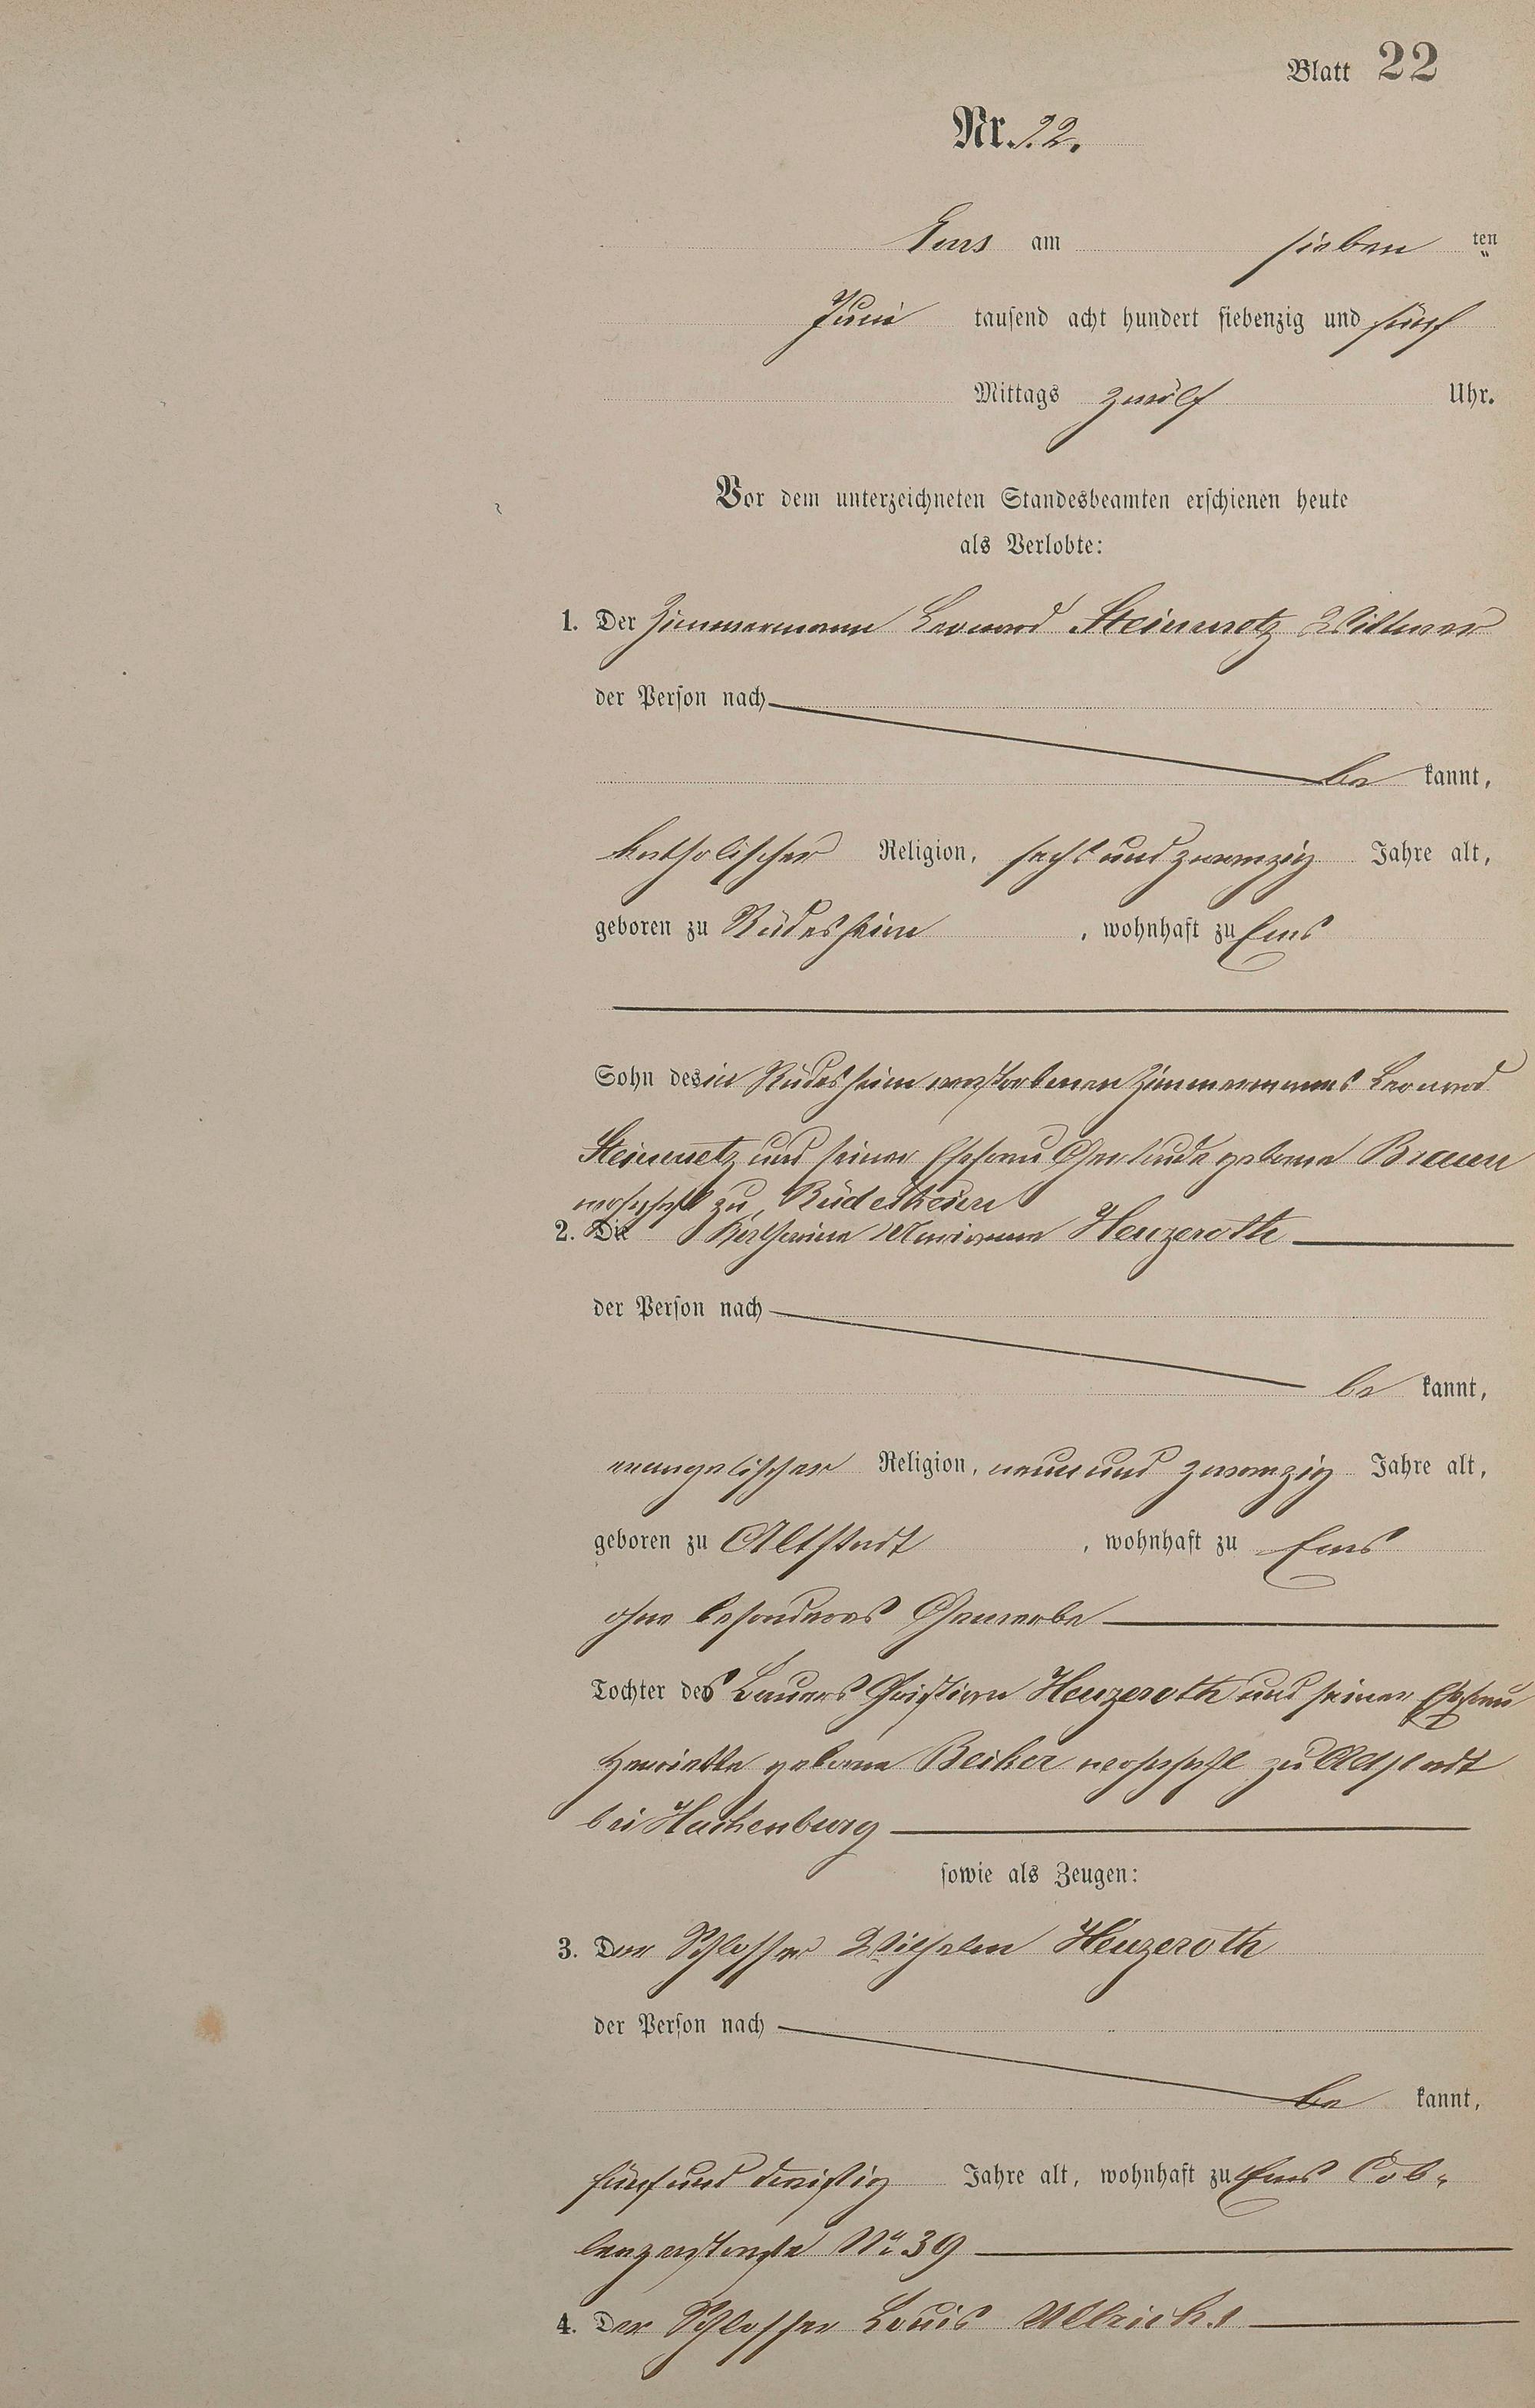 Blatt 22
Nr. 22.
Ems am sieben ten
Juni tausend acht hundert siebenzig und fünf
Mittags zwölf Uhr.
Vor dem unterzeichneten Standesbeamten erschienen heute
als Verlobte:
1. Der Zimmermann Leonard Steinmetz Wittwer
der Person nach
be kannt,
katholischer Religion, sechs und zwanzig Jahre alt,
geboren zu Rüdesheim, wohnhaft zu Ems
Sohn des in Rüdesheim verstorbenen Zimmermanns Leonard
Steinmetz und seiner Ehefrau Gertrude geborne Braun
wohnhaft zu Rüdesheim
2. Die Katharina Marianna Henzeroth
der Person nach
be kannt,
evangelischer Religion, neun und zwanzig Jahre alt,
geboren zu Altstadt, wohnhaft zu Ems
ohne besonderes Gewerbe
Tochter des Bauers Christian Henzeroth und seiner Ehefrau
Henriette geborne Becker wohnhaft zu Altstadt
bei Hachenburg
sowie als Zeugen:
3. Der Schlosser Wilhelm Henzeroth
der Person nach
be kannt,
fünf und dreißig Jahre alt, wohnhaft zu Ems Cob-
lenzerstraße No 39
4. Der Schlosser Louis Ullrich